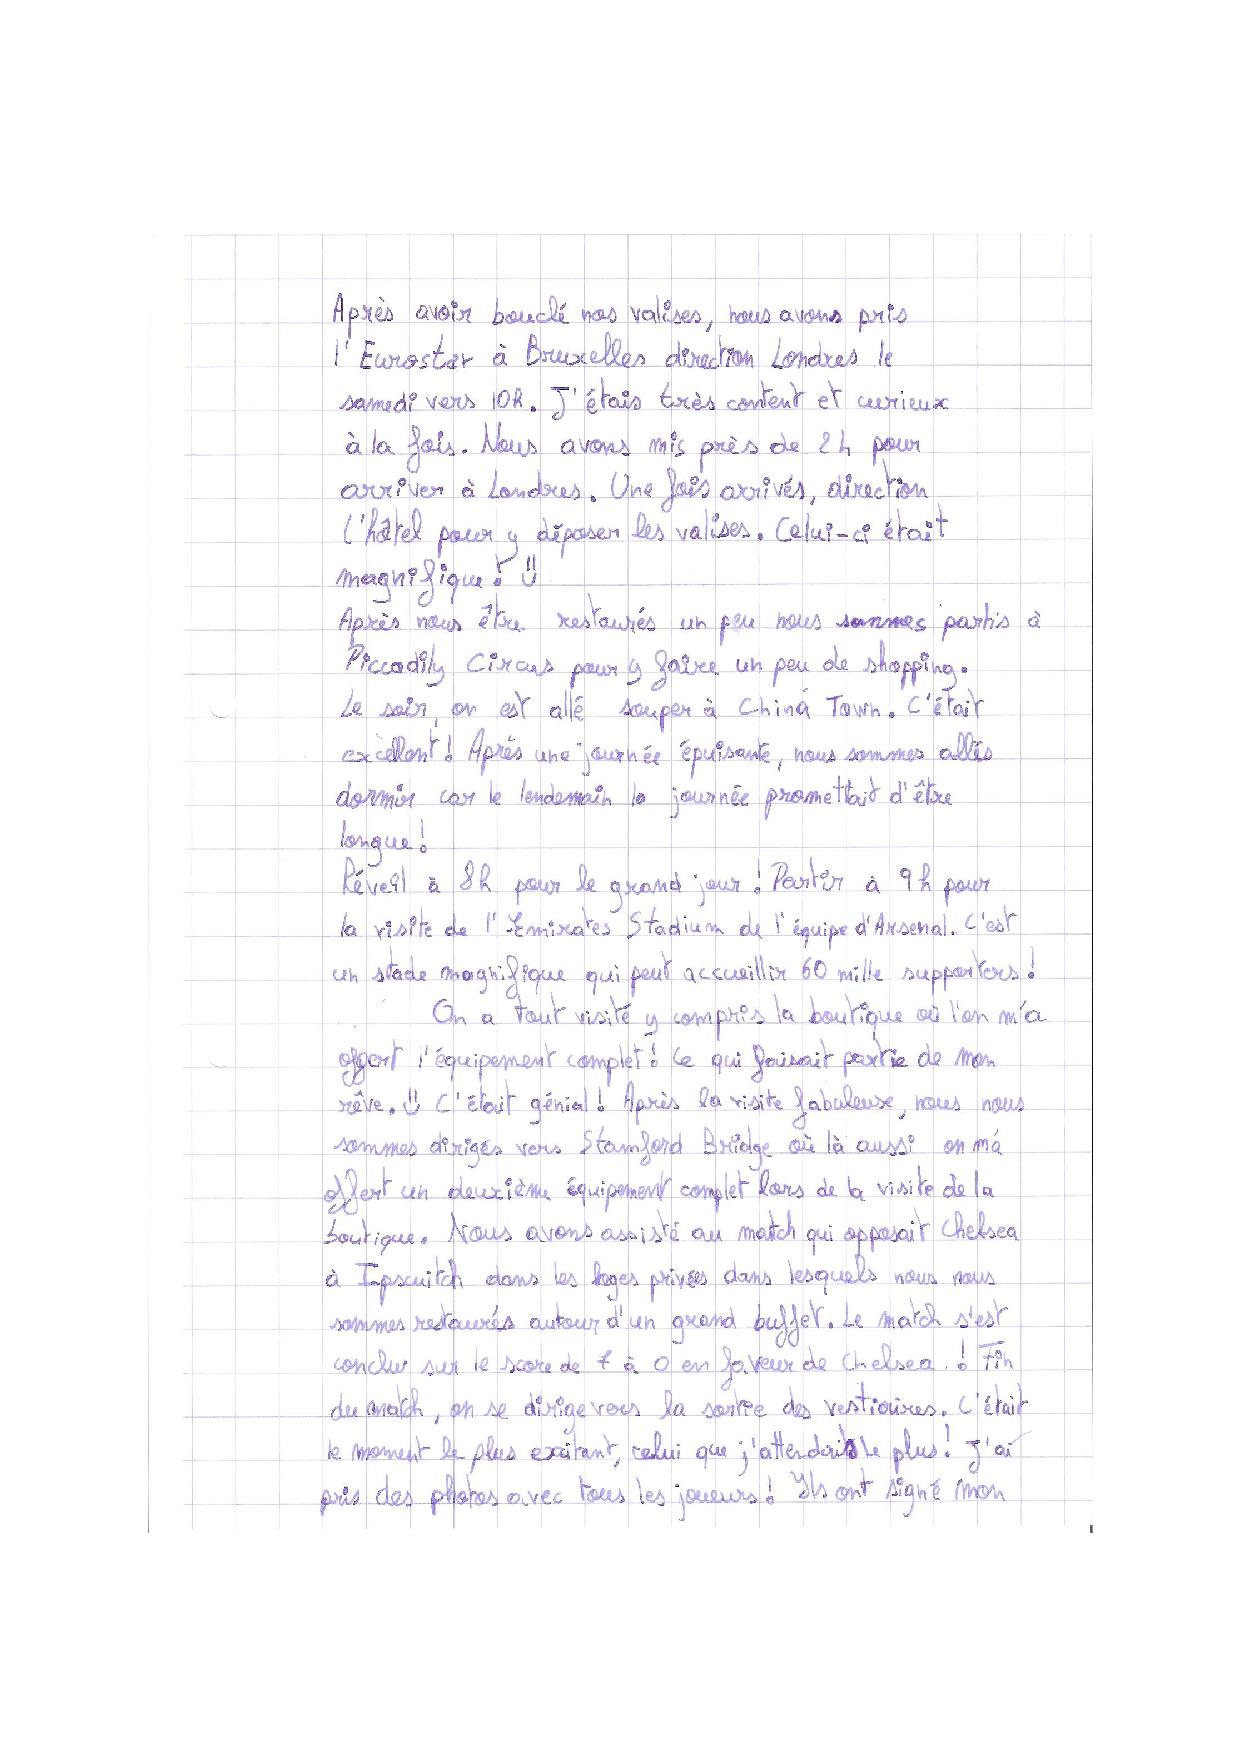 Après avoir bouclé nos valises, nous avons pris
l'Eurostar à Bruxelles direction Londres le
samedi vers 10h. J'étais très content et curieux
à la fois. Nous avons mis près de 2h pour
arriver à Londres. Une fois arrivés, direction
l'hôtel pour y déposer les valises. Celui-ci était
magnifique!
Après nous être restaurés un peu nous sommes partis à
Piccadily Circus pour y faire un peu de shopping.
Le soir, on est allé souper à China Town. C'était
excellent! Après une journée épuisante, nous sommes allés
dormir car le lendemain la journée promettait d'être
longue!
Réveil à 8h pour le grand jour! Partir à 9h pour
la visite de l'Emirates Stadium de l'équipe d'Arsenal. C'est
un stade magnifique qui peut accueillir 60 mille supporters!
On a tout visité y compris la boutique où l'on m'a
offert l'équipement complet! Ce qui faisait partie de mon
rêve. C'était génial! Après la visite fabuleuse, nous nous
sommes dirigés vers Stamford Bridge où là aussi on m'a
offert un deuxième équipement complet lors de la visite de la
boutique. Nous avons assisté au match qui opposait Chelsea
à Ipscuitch dans les loges privées dans lesquels nous nous
sommes restaurés autour d'un grand buffet. Le match s'est
conclu sur le score de 7 à 0 en faveur de Chelsea.! Fin
du match, on se dirige vers la sortie des vestiaires. C'était
le moment le plus exitant, celui que j'attendais le plus! J'ai
pris des photos avec tous les joueurs! Ils ont signé mon